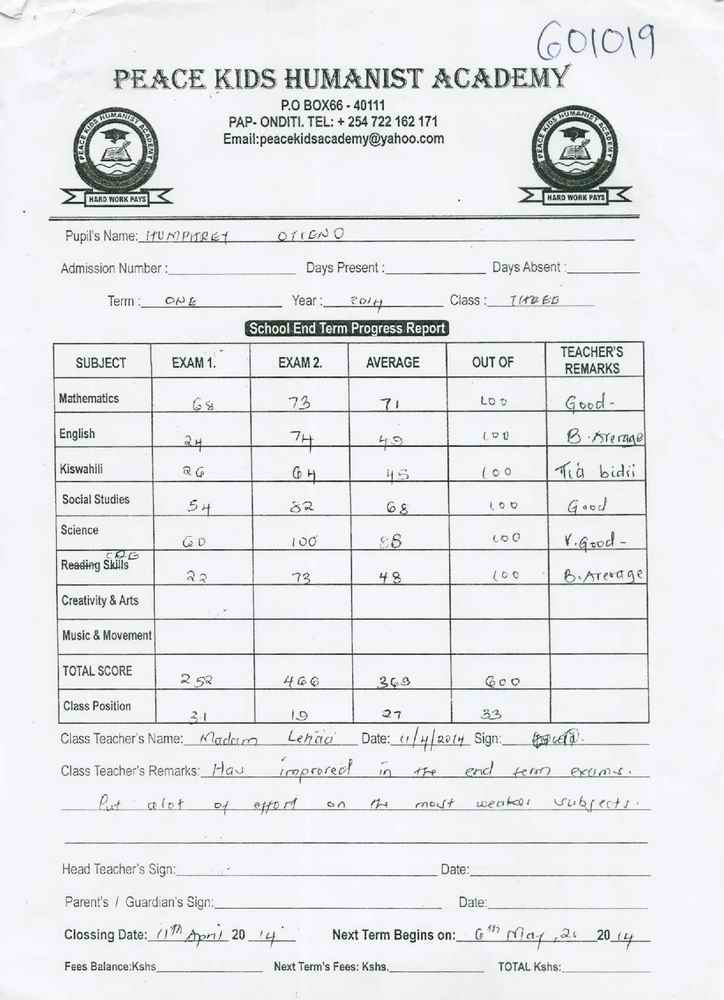 601019
PEACE KIDS HUMANIST ACADEMY
P.O BOX66 - 40111
PAP- ONDITI. TEL: + 254 722 162 171
Email:peacekidsacademy@yahoo.com
PEACE KIDS HUMANIST ACADEMY
HARD WORK PAYS
PEACE KIDS HUMANIST ACADEMY
HARD WORK PAYS
Pupil's Name: HUMPHREY OTIENO
Admission Number : Days Present : Days Absent :
Term : ONE Year : 2014 Class : THREE
School End Term Progress Report
SUBJECT EXAM 1. EXAM 2. AVERAGE OUT OF TEACHER'S REMARKS
Mathematics 68 73 71 100 Good-
English 24 74 49 100 B. Average
Kiswahili 26 64 45 100 Tia bidii
Social Studies 54 82 68 100 Good
Science 60 100 88 100 V. Good-
Reading Skills CRE 22 73 48 100 B. Average
Creativity & Arts
Music & Movement
TOTAL SCORE 252 466 369 600
Class Position 31 19 27 33
Class Teacher's Name: Madam Date: 11/4/2014 Sign:
Class Teacher's Remarks: Has improved in the end term exams.
Put alot of effort on the most weaker subjects.
Head Teacher's Sign: Date:
Parent's / Guardian's Sign: Date:
Clossing Date: 11th April 20 14 Next Term Begins on: 6th May, 20 14
Fees Balance:Kshs Next Term's Fees: Kshs. TOTAL Kshs: